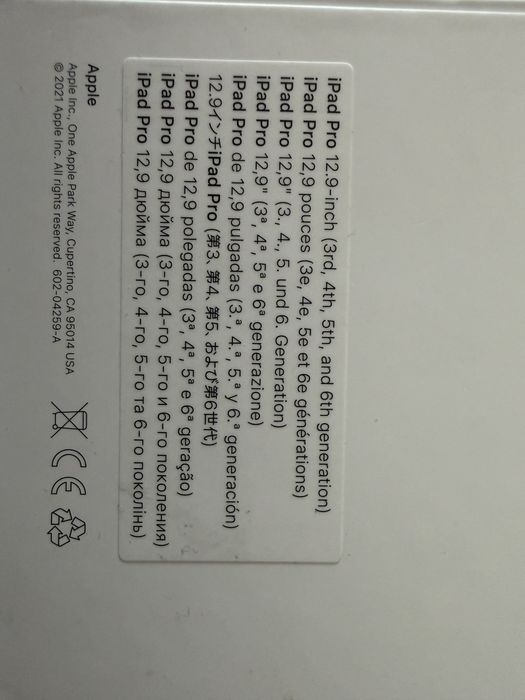 iPad Pro 12.9-inch (3rd, 4th, 5th, and 6th generation)
iPad Pro 12,9 pouces (3e, 4e, 5e et 6e générations)
iPad Pro 12,9" (3., 4., 5. und 6. Generation)
iPad Pro 12,9" (3ª, 4ª, 5ª e 6ª generazione)
iPad Pro de 12,9 pulgadas (3.ª, 4.ª, 5.ª y 6.ª generación)
12.9インチiPad Pro (第3、第4、第5、および第6世代)
iPad Pro de 12,9 polegadas (3ª, 4ª, 5ª e 6ª geração)
iPad Pro 12,9 дюйма (3-го, 4-го, 5-го и 6-го поколения)
iPad Pro 12,9 дюйма (3-го, 4-го, 5-го та 6-го поколінь)
Apple
Apple Inc., One Apple Park Way, Cupertino, CA 95014 USA
© 2021 Apple Inc. All rights reserved. 602-04259-A
CE